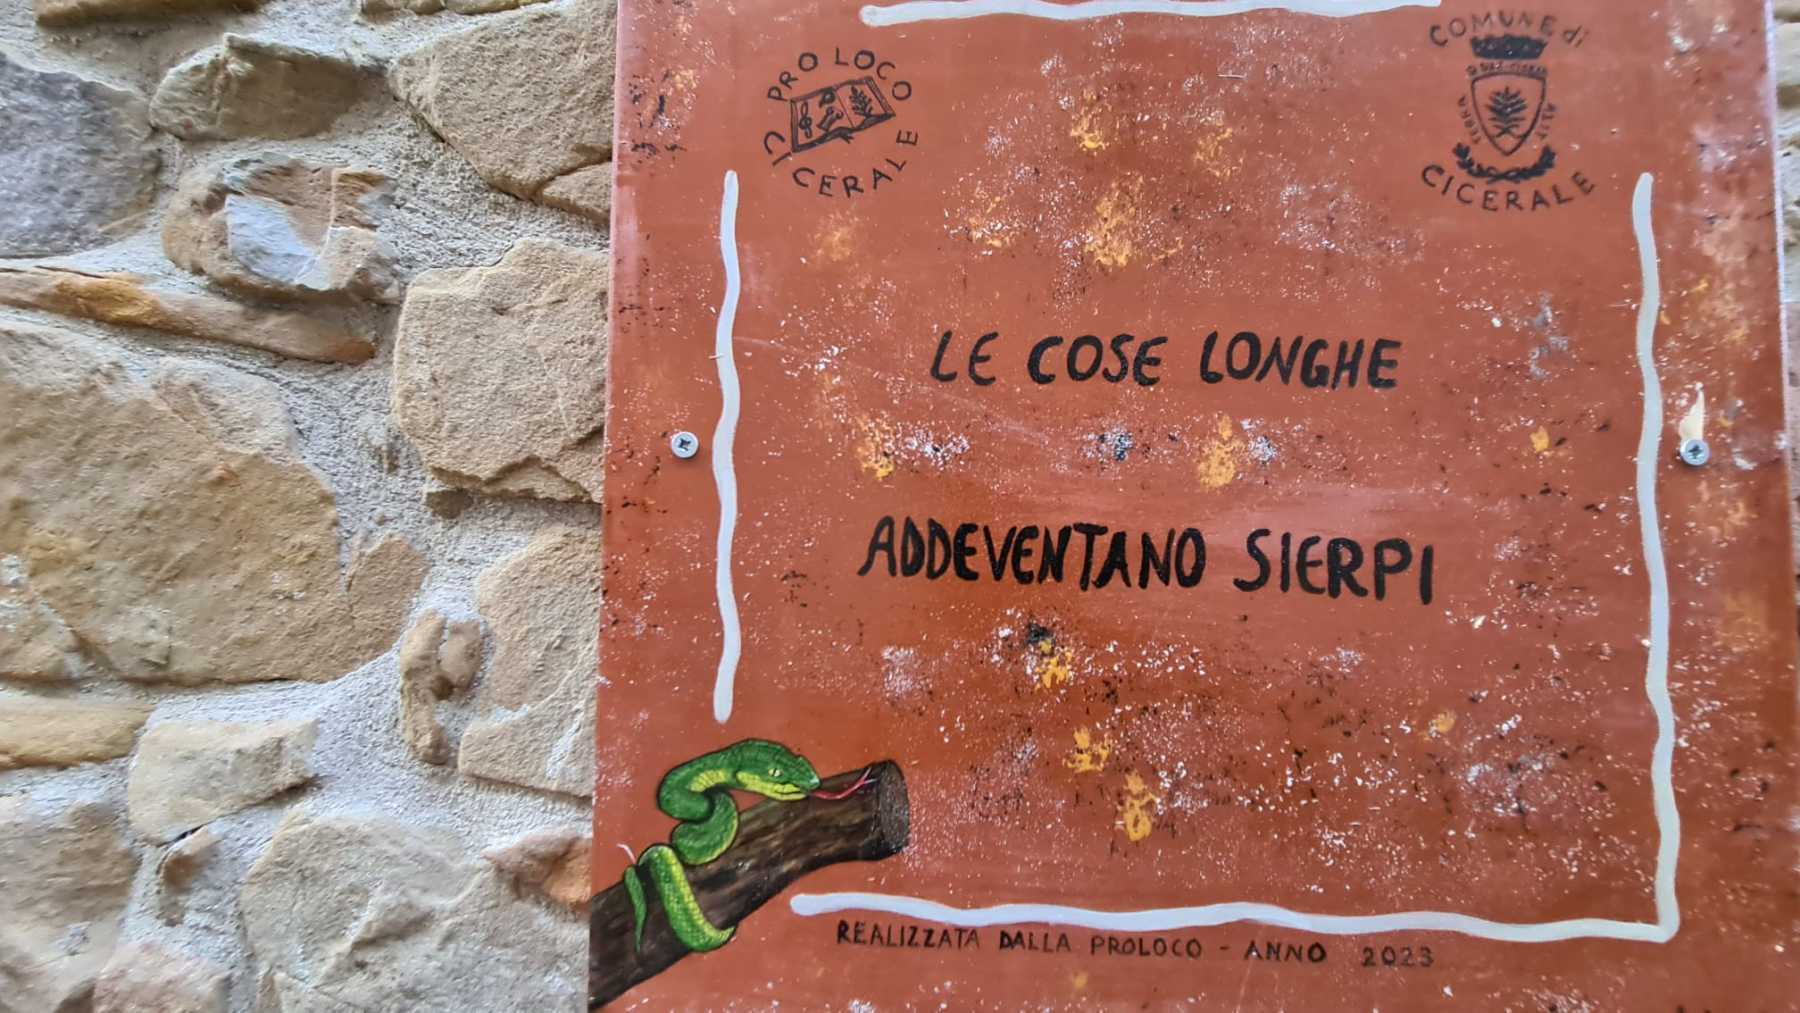 PRO LOCO
CICERALE
COMUNE di
CICERALE
LE COSE LONGHE
ADDEVENTANO SIERPI
REALIZZATA DALLA PROLOCO - ANNO 2023